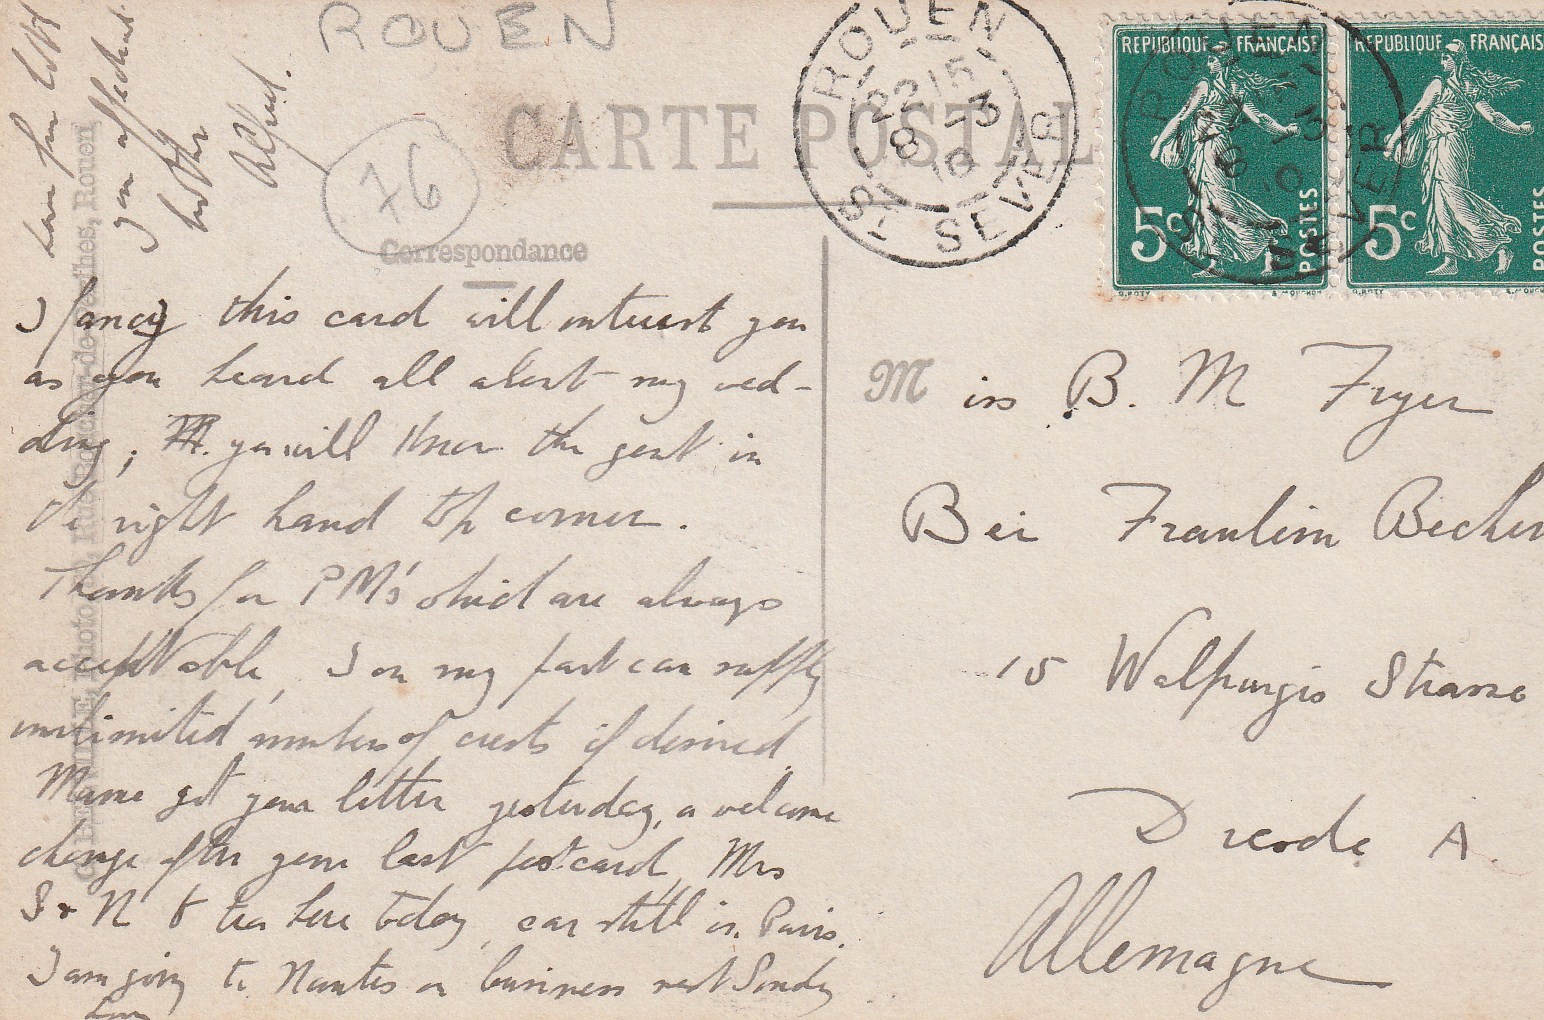 ROUEN
76
CARTE POSTALE
Correspondance
ROUEN
22 15
8 - 3
10
ST SEVER
REPUBLIQUE FRANÇAISE
5c
POSTES
O. ROTY
E. MOUCHON
REPUBLIQUE FRANÇAISE
5c
POSTES
O. ROTY
E. MOUCHON
I fancy this card will interest you
as you heard all about my wed-
ding; you will know the gent in
the right hand top corner.
Thanks for PM's which are always
acceptable, I on my part can supply
unlimited numbers of crests if desired.
Mame got your letter yesterday, a welcome
change after your last postcard, Mrs
S & N to tea here today, car still in Paris.
I am going to Nantes on business next Sunday
Love from
your affectionate
brother
Alfred.
Photo Rue Racine-de-Perthes, Rouen
Miss B. M Fryer
Bei Fraulein Becker
15 Walpurgis Strasse
Dresde A.
Allemagne